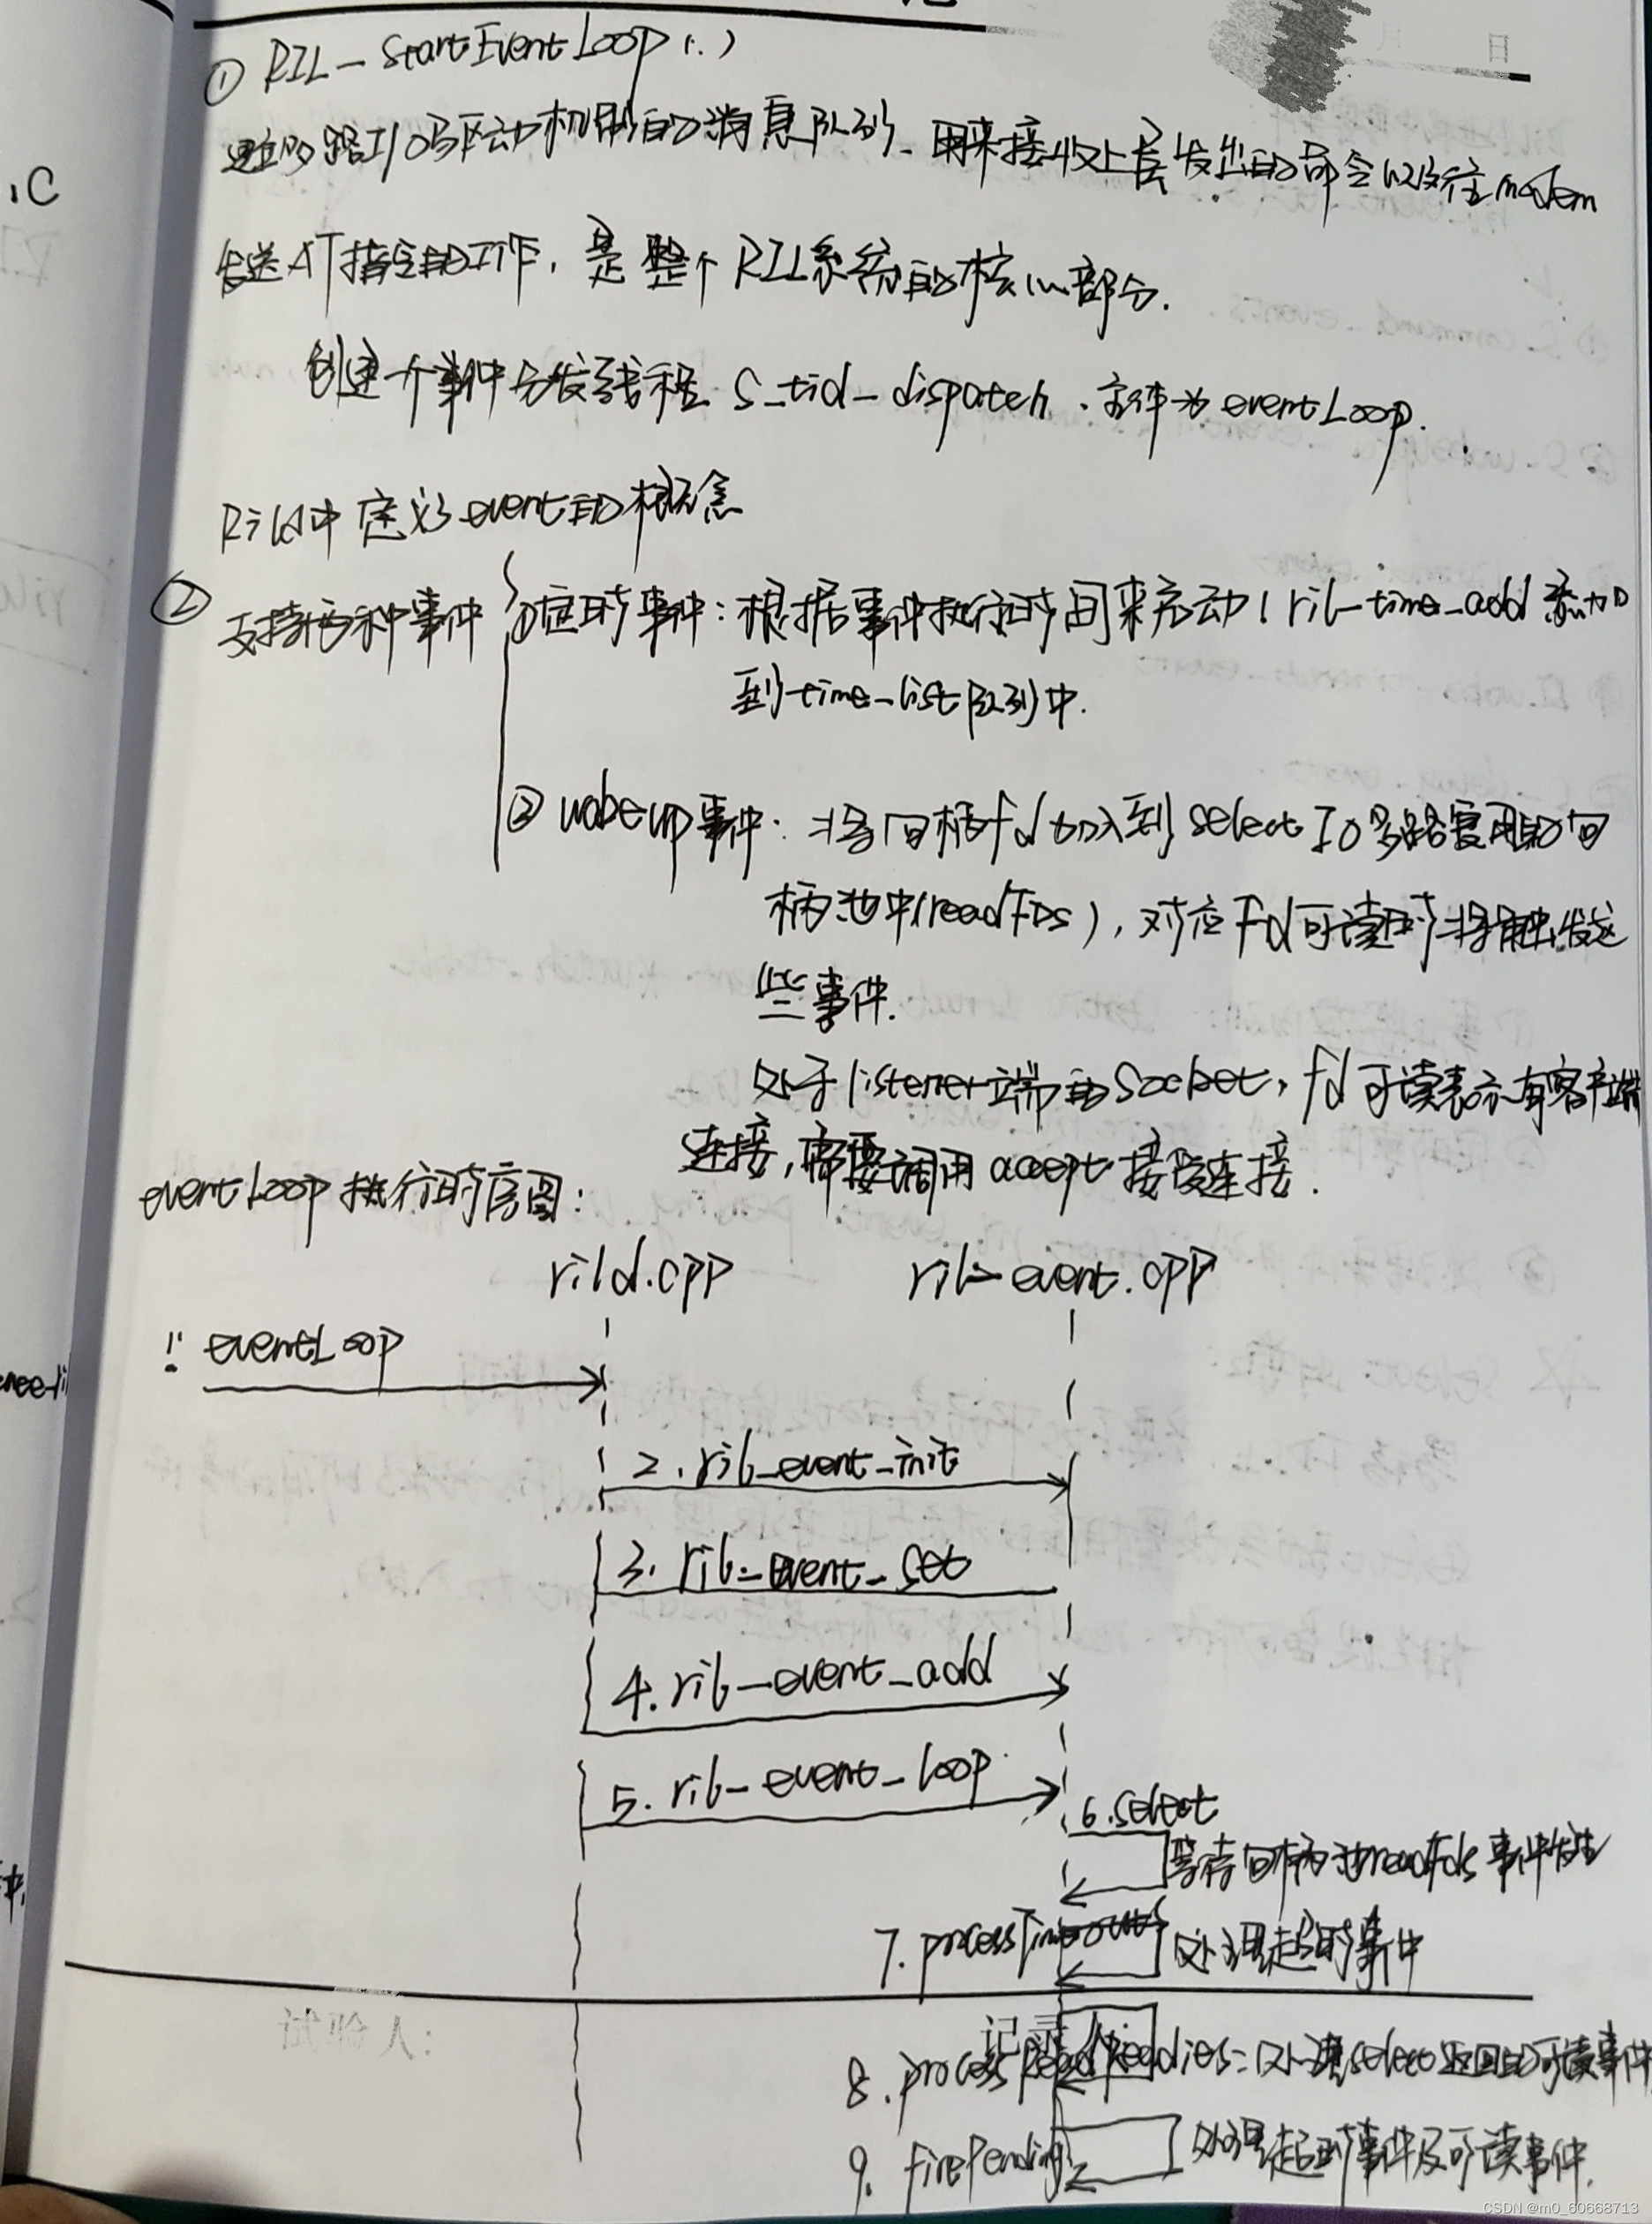 ① RIL_startEventLoop(..)
建立多路I/O驱动机制的消息队列、用来接收上层发出的命令以及往modem
发送AT指令的工作，是整个RIL系统的核心部分.
创建一个事件分发线程 s_tid_dispatch、为eventLoop.
Rild中定义了event的概念
② 支持两种事件 ①定时事件：根据事件执行时间来启动 ril_time_add 添加
到time_list队列中.
② wakeup事件：将句柄fd加入到select IO多路复用的句
柄池中(readFDs)，对应Fd可读时将触发这
些事件.
处于listener端的socket，fd可读表示有客户端
连接，需要调用accept接受连接.
eventLoop执行时序图：
rild.cpp ril_event.cpp
1: eventLoop
2. ril_event_init
3. ril_event_set
4. ril_event_add
5. ril_event_loop
6. select
等待句柄池readFds事件发生
7. processTimeouts 处理超时事件
记录人:
8. processReadReadies: 处理select返回的可读事件
9. firePending 处理超时事件及可读事件.
CSDN @m0_60668713
日
.C